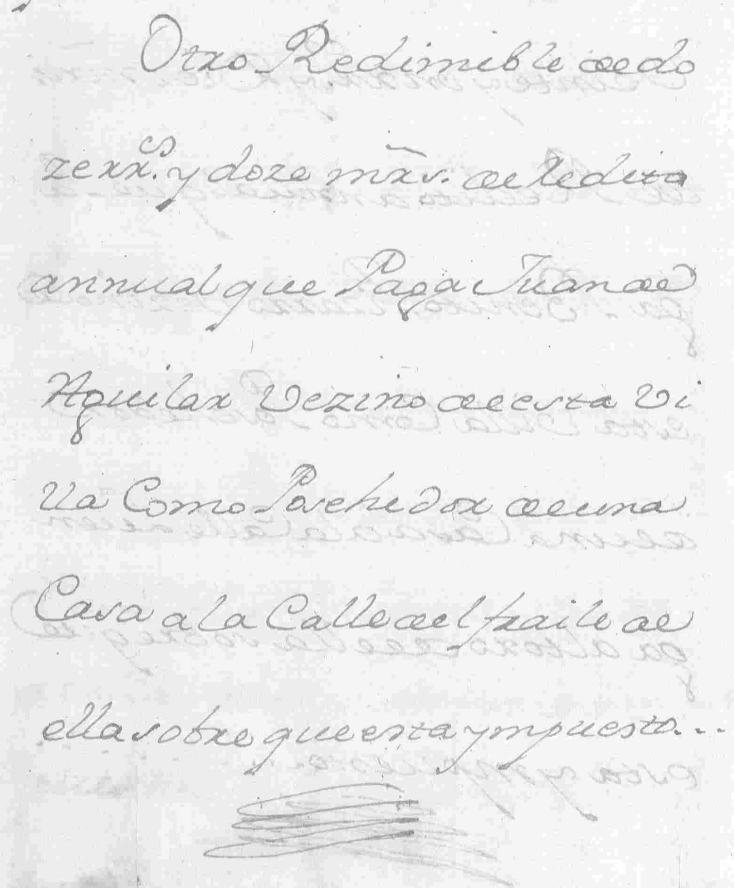 Otro Redimible de do
ze rr.^s y doze mrs. de Redito
annual que Paga Juan de
Aguilar Vezino de esta Vi
lla Como Posehedor de una
Casa a la Calle del fraile de
ella sobre que esta ympuesto...